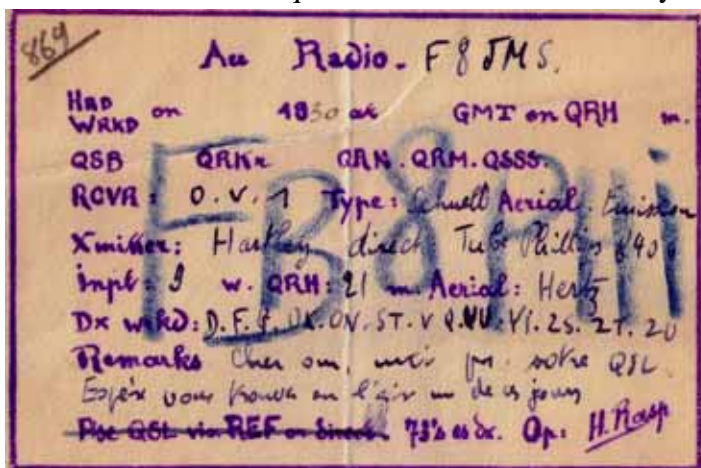 869
Au Radio. F8JMS.
HRD
WRKD on 1930 at GMT on QRH m.
QSB QRKr QRN. QRM. QSSS
FB8HHi
RCVR: O.V.1 Type: Schnell Aerial: Emission
Xmitter: Hartley direct Tube Phillips
Inpt: 9 w. QRH: 21 m. Aerial: Hertz
Dx wrkd: D.F.G. OK. ON. ST. V VU. YI. ZS. ZT. ZU
Remarks Cher om, merci pr. votre QSL.
Espère vous trouver en l'air un de ces jours
Pse QSL via REF or direct. 73's es dx. Op: H. Rasp